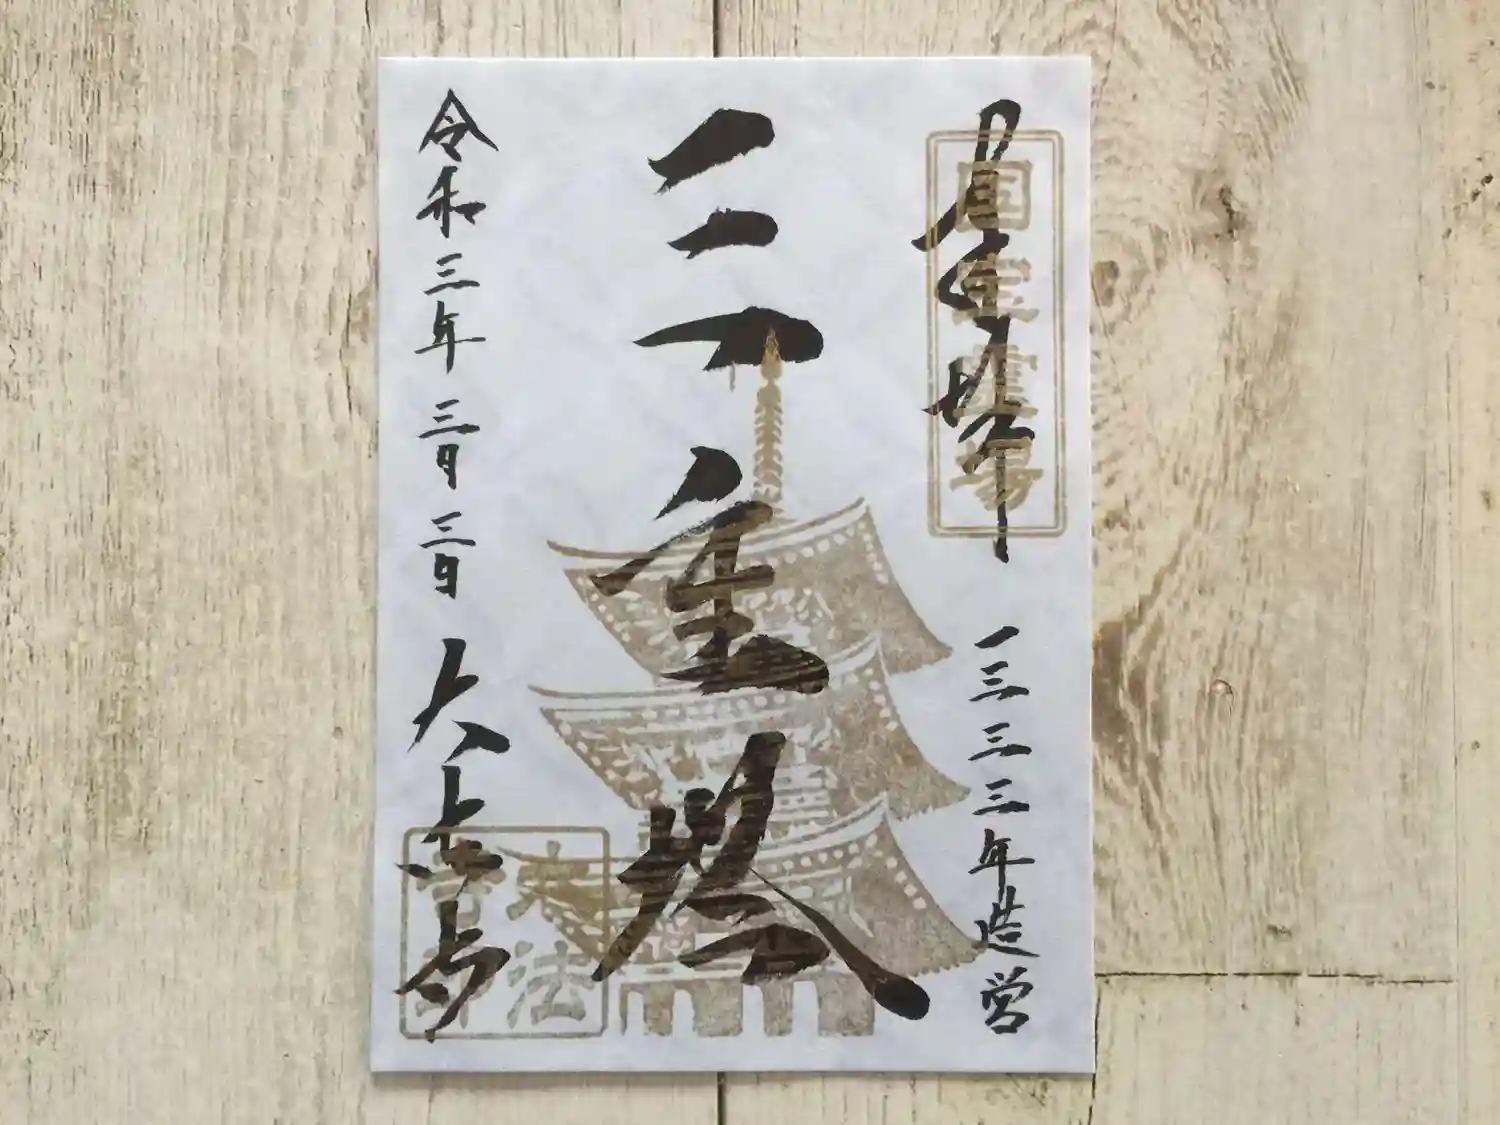 国宝霊場
一三三三年造営
三重塔
令和三年三月三日 大法寺
大法寺印